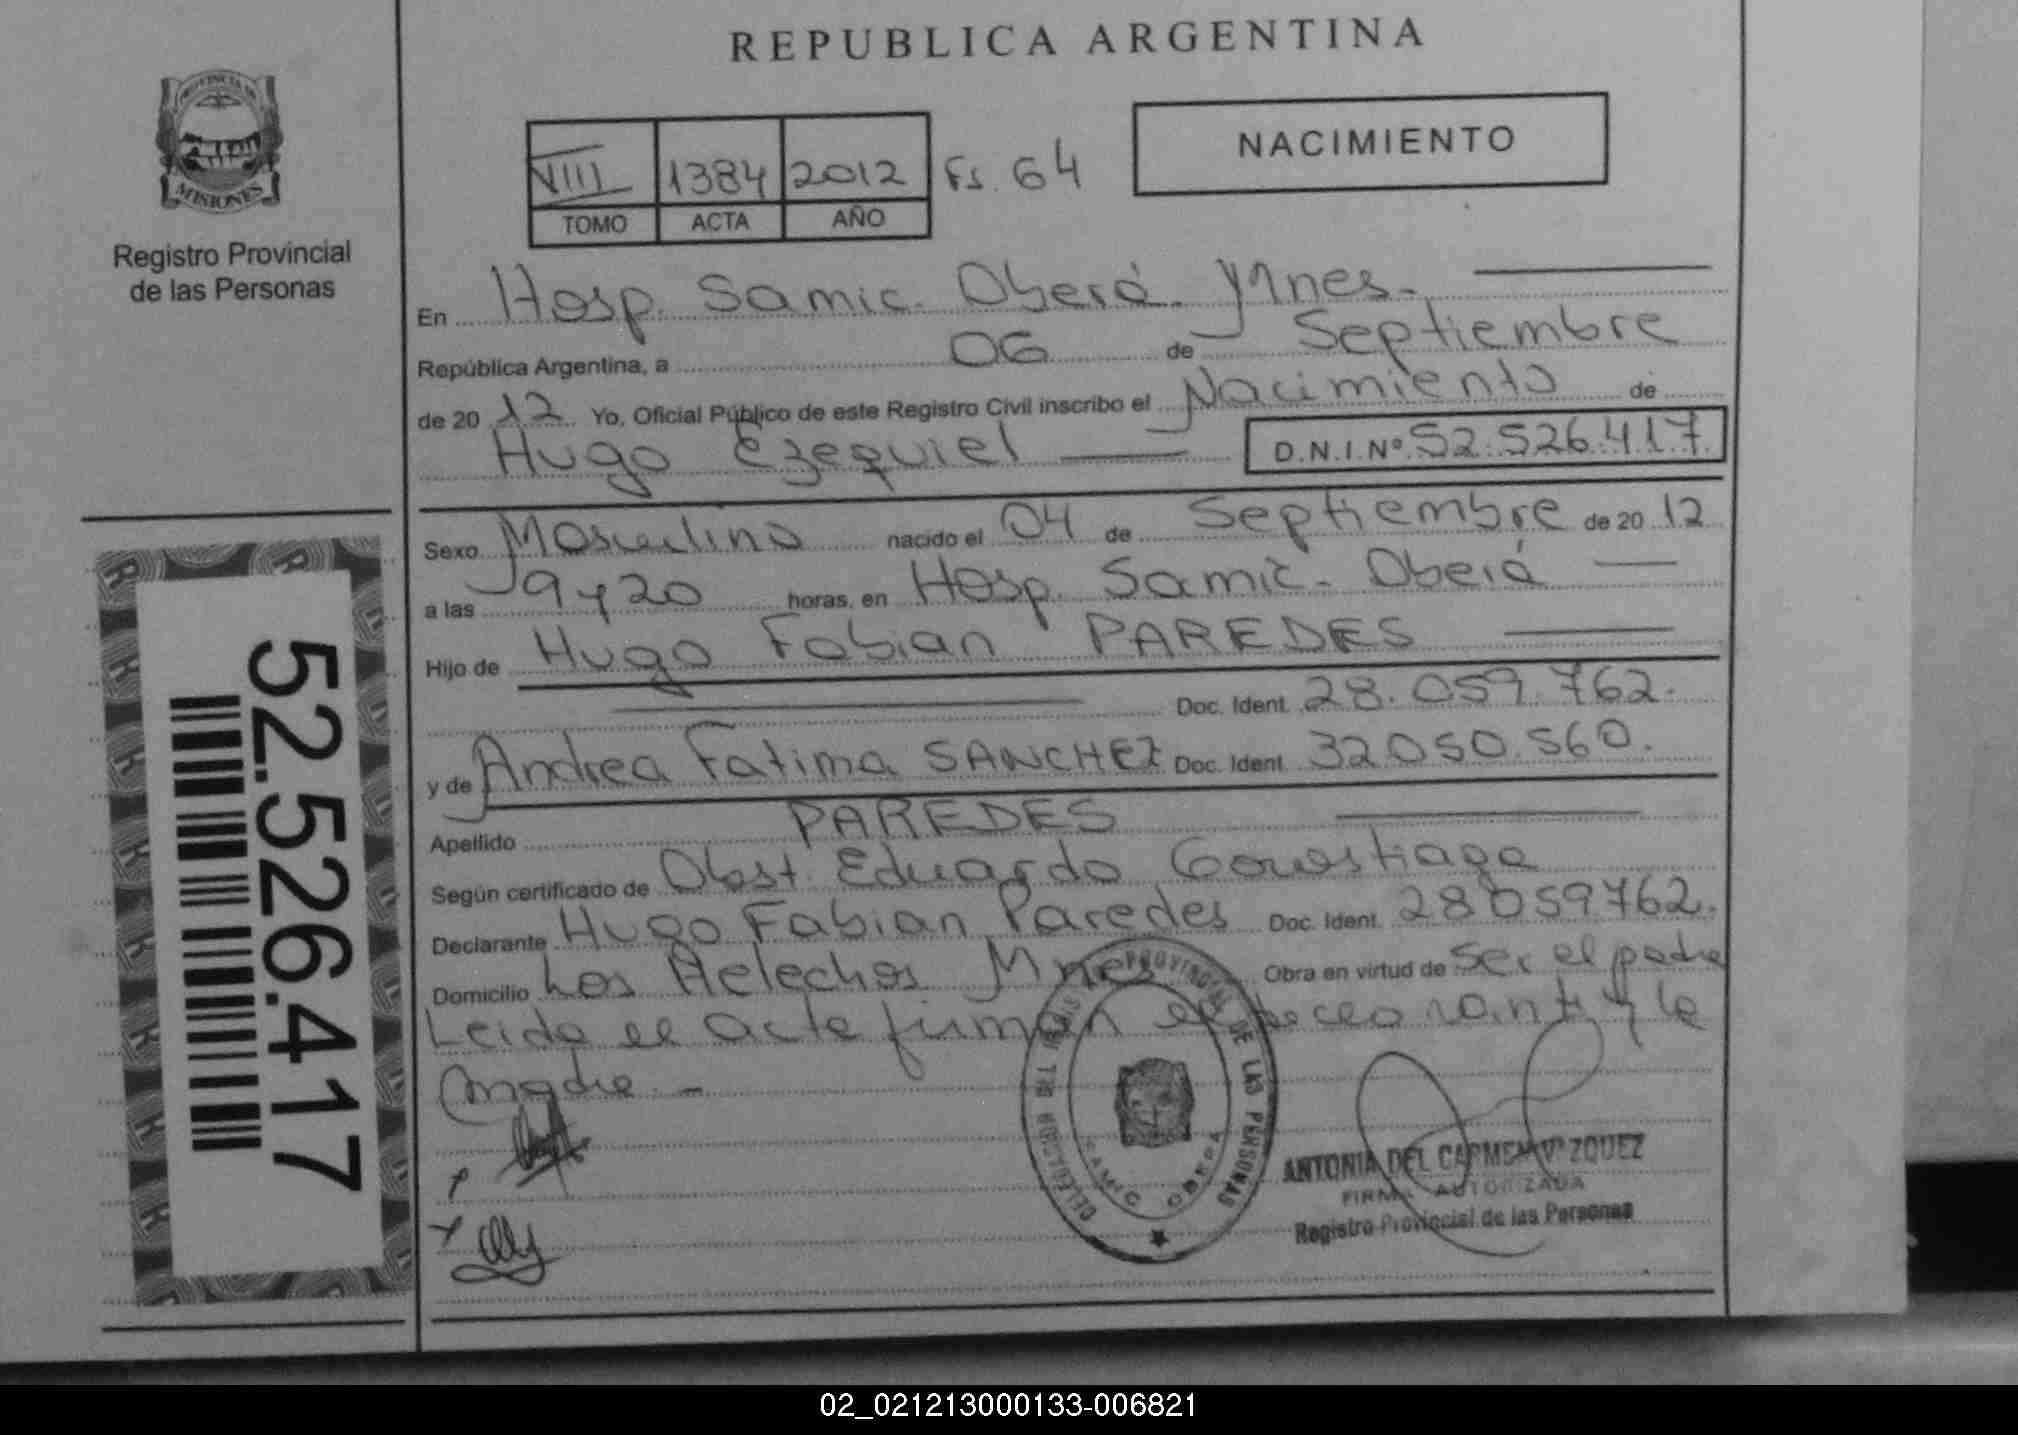 REPUBLICA ARGENTINA
PROVINCIA DE
MISIONES
Registro Provincial
de las Personas
VIII 1384 2012 Fs. 64
TOMO ACTA AÑO
NACIMIENTO
En Hosp. Samic. Oberá. Mnes.
República Argentina, a 06 de Septiembre
de 2012 Yo, Oficial Público de este Registro Civil inscribo el Nacimiento de
Hugo Ezequiel D.N.I.Nº 52.526.417
Sexo Masculino nacido el 04 de Septiembre de 2012
a las 9 y 20 horas, en Hosp. Samic. Oberá
Hijo de Hugo Fabian PAREDES
Doc. Ident. 28.059.762.
y de Andrea Fatima SANCHEZ Doc. Ident. 32.050.560.
Apellido PAREDES
Según certificado de Obst. Eduardo
Declarante Hugo Fabian Paredes Doc. Ident. 28059762.
Domicilio Los Helechos Mnes Obra en virtud de ser el padre
Leida el acta firman el y la
madre. -
52.526.417
PROVINCIAL DE LAS PERSONAS
SAMIC OBERA
ANTONIA DEL CARMEN VAZQUEZ
FIRMA AUTORIZADA
Registro Provincial de las Personas
02_021213000133-006821